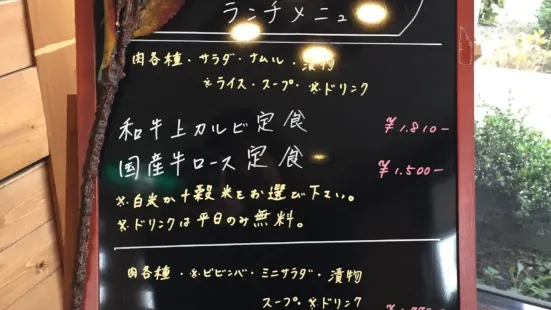 ランチメニュー
肉各種・サラダ・ナムル・漬物
※ライス・スープ・※ドリンク
和牛上カルビ定食 ¥1.810-
国産牛ロース定食 ¥1.500-
※白米か十穀米をお選び下さい。
※ドリンクは平日のみ無料。
肉各種・※ビビンバ・ミニサラダ・漬物
スープ・※ドリンク